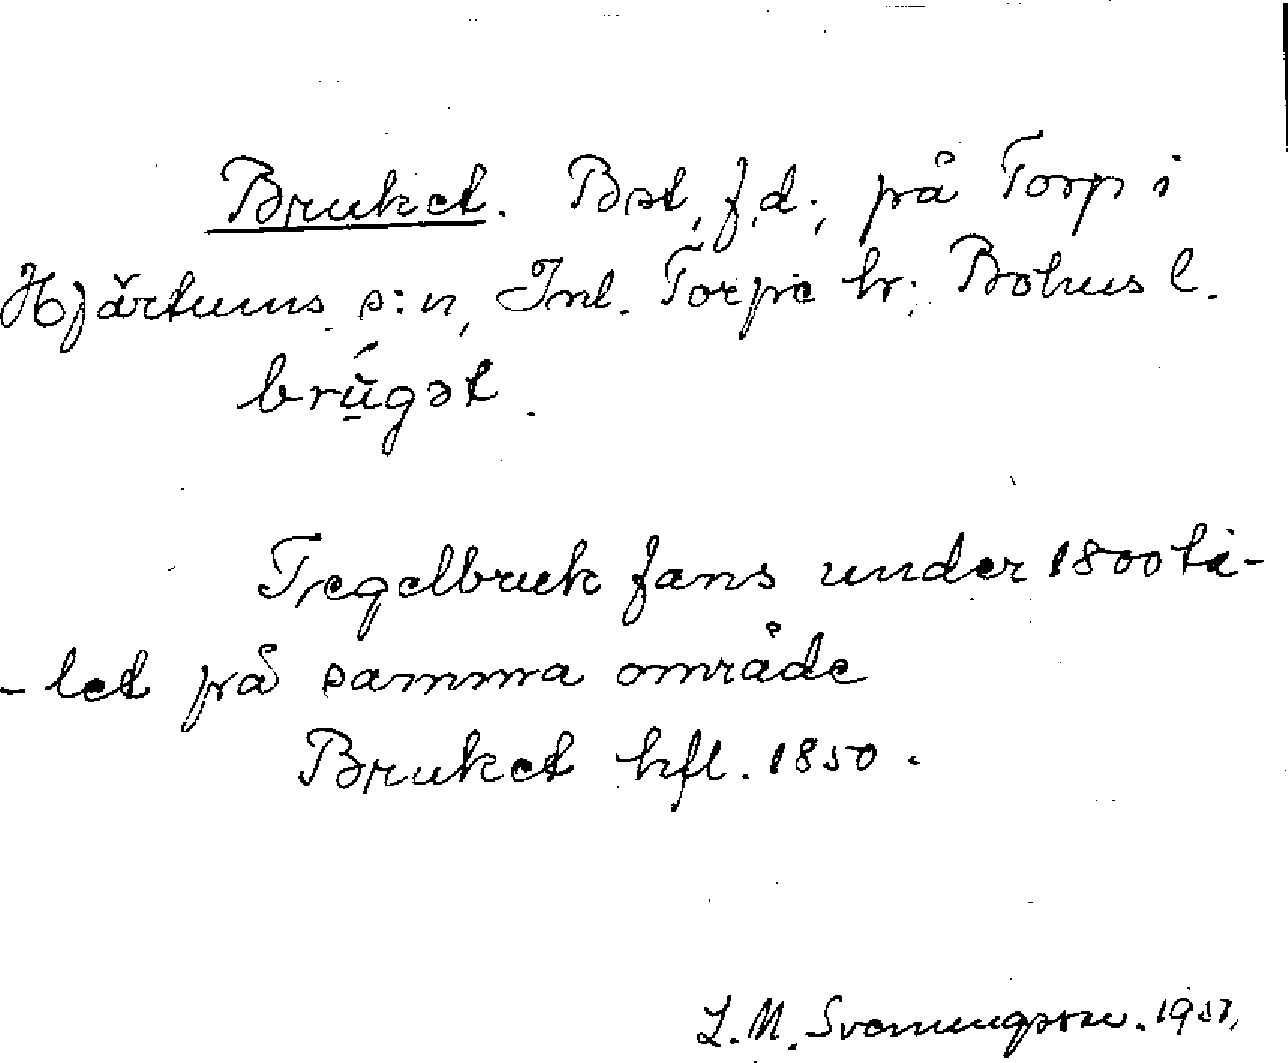 Bruket. Bst, f.d., på Torp i
Hjärtums s:n, Inl. Torpe hr. Bohus l.
brúgət.
Tegelbruk fans under 1800 ta-
-let på samma område
Bruket hfl. 1850.
L. M. Svenungsson. 1937,